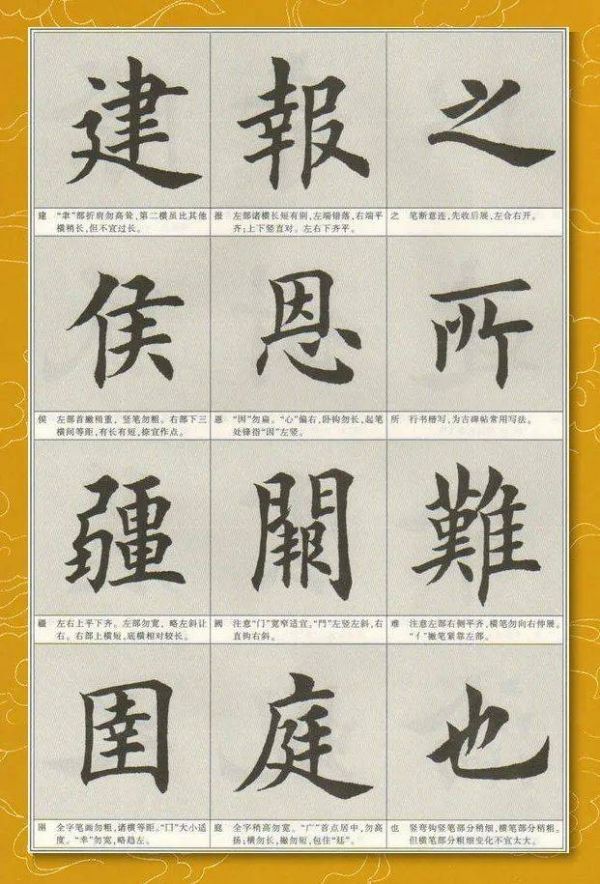 建 報 之
建 “聿”部折肩勿高耸,第二横虽比其他
横稍长,但不宜过长。
报 左部诸横长短有别,左端错落,右端平
齐;上下竖直对。左右下齐平。
之 笔断意连,先收后展,左合右开。
侯 恩 所
侯 左部首撇稍重,竖笔勿粗。右部下三
横间等距,有长有短,捺宜作点。
恩 “因”勿扁。“心”偏右,卧钩勿长,起笔
处锋指“因”左竖。
所 行书楷写,为古碑帖常用写法。
疆 闕 難
疆 左右上平下齐。左部勿宽,略左斜让
右。右部上横短,底横相对较长。
阙 注意“门”宽窄适宜。“門”左竖左斜,右
直钩右斜。
难 注意左部右侧平齐,横笔勿向右伸展。
“亻”撇笔紧靠左部。
圉 庭 也
圉 全字笔画勿粗,诸横等距。“囗”大小适
度。“幸”勿宽,略趋左。
庭 全字稍高勿宽。“广”首点居中,勿高
扬;横勿长,撇勿短,包住“廷”。
也 竖弯钩竖笔部分稍细,横笔部分稍粗。
但横笔部分粗细变化不宜太大。